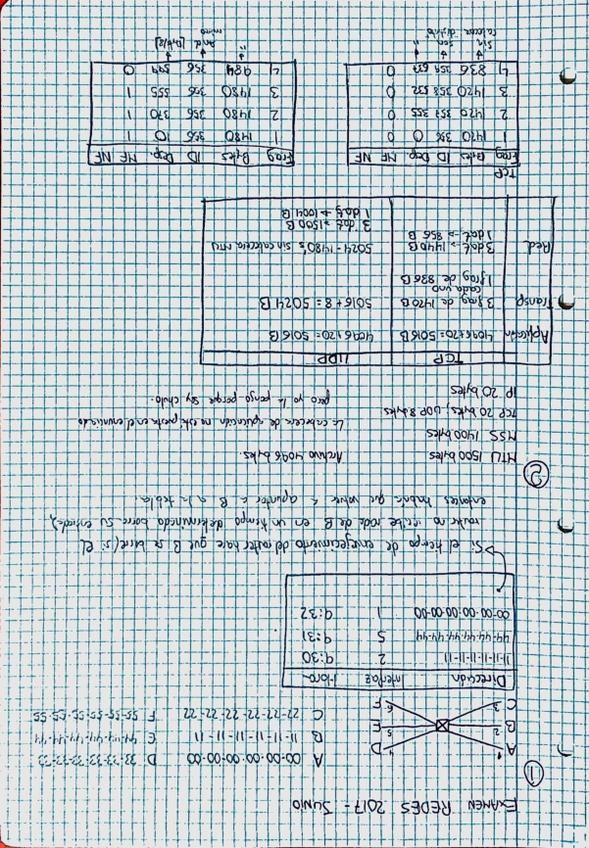 EXAMEN REDES 2017 - JUNIO
①
A 1
B 2
C 3
4 D
5 E
6 F
A 00-00-00-00-00-00 D 33-33-33-33-33
B 11-11-11-11-11-11 E 44-44-44-44-44
C 22-22-22-22-22-22 F 55-55-55-55-55-55
Dirección Interfaz Hora
11-11-11-11-11-11 2 9:30
44-44-44-44-44-44 5 9:31
00-00-00-00-00-00 1 9:32
Si el tiempo de envejecimiento del router hace que B se borre (si el
router no recibe nada de B en un tiempo determinado borra su entrada),
entonces habría que volver a apuntar a B a la tabla.
②
MTU 1500 bytes Archivo 4096 bytes.
MSS 1400 bytes
TCP 20 bytes, UDP 8 bytes La cabecera de aplicación no está puesta en el enunciado
IP 20 bytes pero yo la pongo porque soy chulo.
TCP UDP
Aplicación 4096+20= 5016B 4096+20= 5016B
Transp 3 frag de 1420B 5016+8 = 5024B
cada uno
1 frag de 836B
Red 3 dat -> 1440B 5024-1480's sin cabecera MTU
1 dat -> 856 B 3 dat -> 1500B
1 dat -> 1004B
TCP
Frag Bytes ID Dep. MF NF Frag Bytes ID Dep. MF NF
1 1420 356 0 0 1 1480 356 0 1
2 1420 357 355 0 2 1480 356 370 1
3 1420 358 532 0 3 1480 356 555 1
4 836 359 677 0 4 984 356 1
sin
cabecera